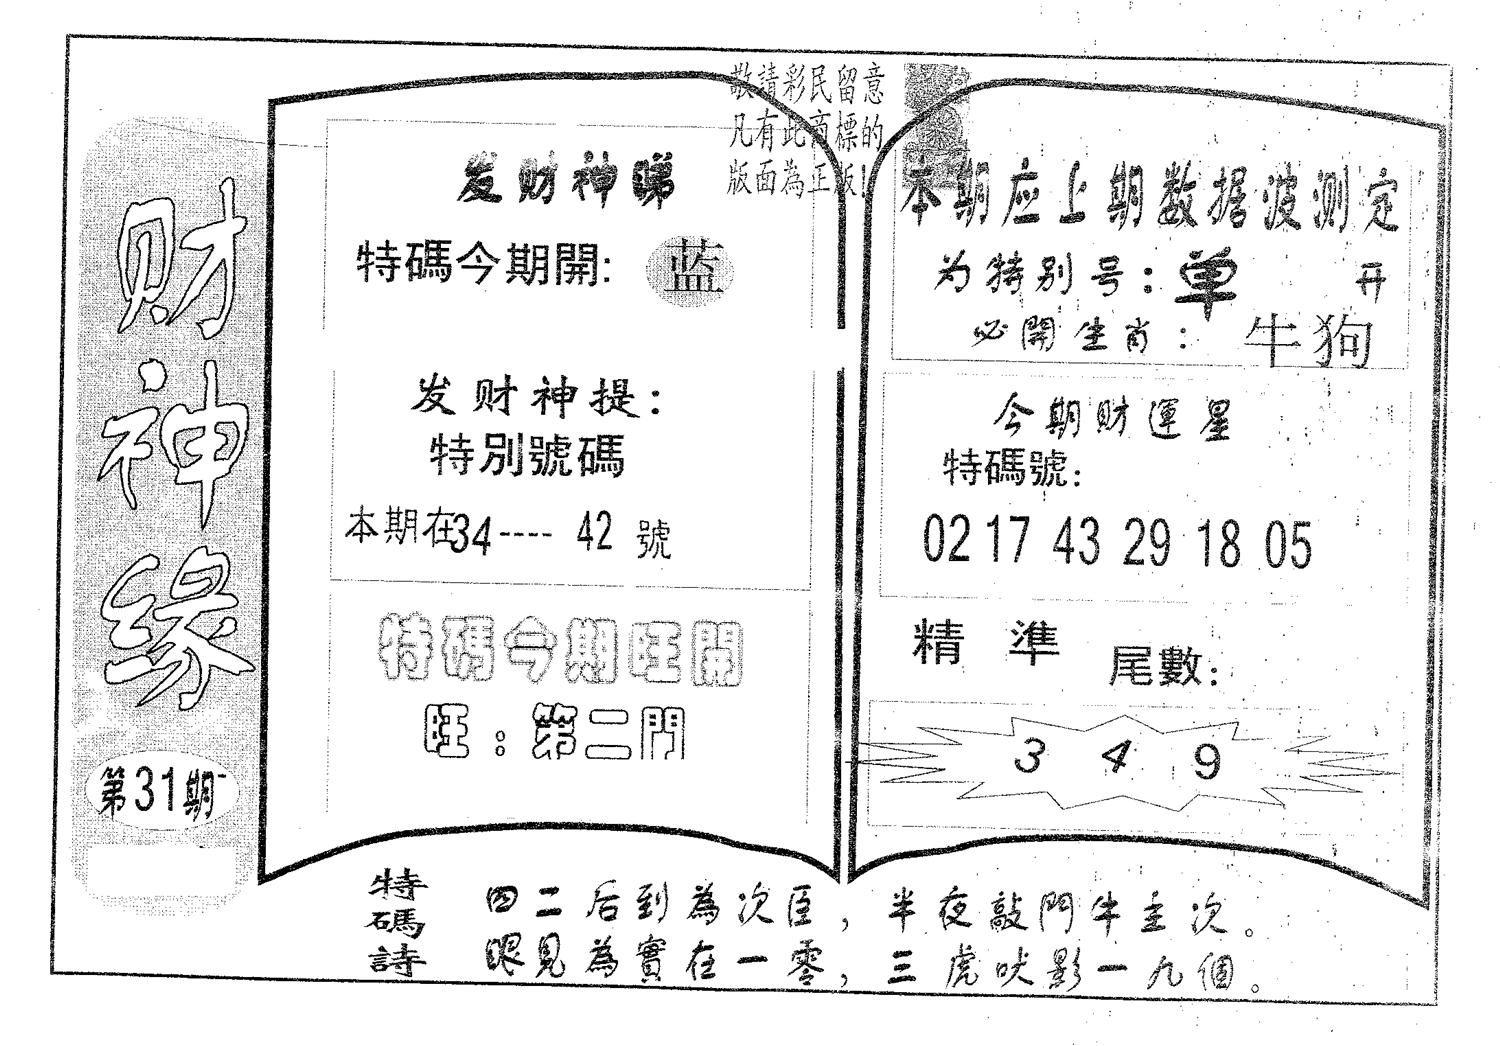 财神缘
第31期
敬請彩民留意
凡有此商標的
版面為正版!
发财神睇
特碼今期開: 蓝
发财神提:
特別號碼
本期在34---- 42 號
特碼今期旺開
旺: 第二門
本期应上期数据波测定
为特别号: 单 开
必開生肖: 牛狗
今期财運星
特碼號:
02 17 43 29 18 05
精準 尾數:
3 4 9
特碼詩
四二后到為次臣, 半夜敲門牛主次。
眼見為實在一零, 三虎吠影一九個。